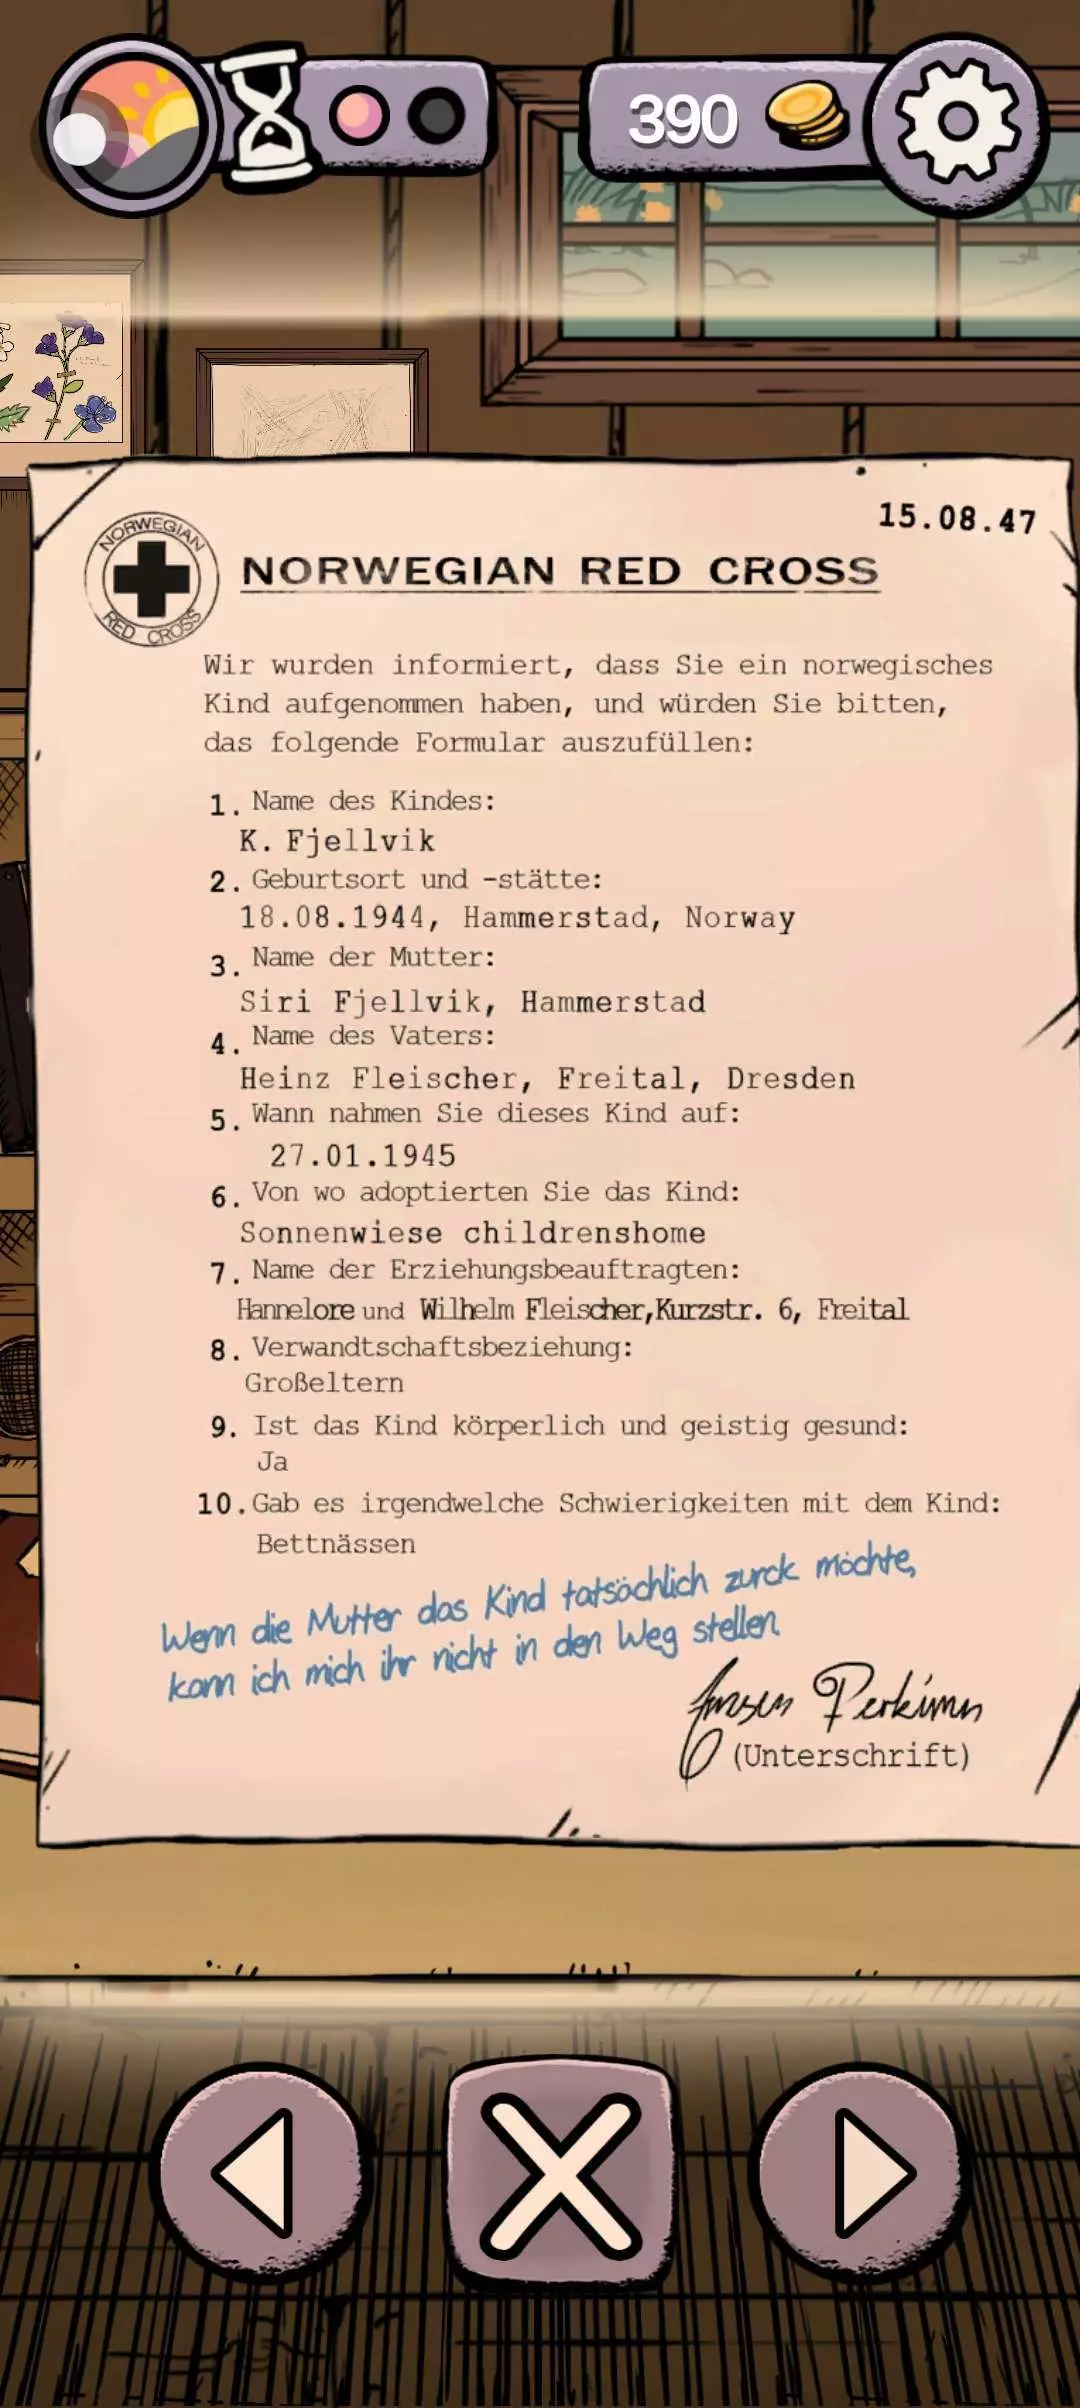 390
15.08.47
NORWEGIAN
RED CROSS
NORWEGIAN RED CROSS
Wir wurden informiert, dass Sie ein norwegisches
Kind aufgenommen haben, und würden Sie bitten,
das folgende Formular auszufüllen:
1. Name des Kindes:
K. Fjellvik
2. Geburtsort und -stätte:
18.08.1944, Hammerstad, Norway
3. Name der Mutter:
Siri Fjellvik, Hammerstad
4. Name des Vaters:
Heinz Fleischer, Freital, Dresden
5. Wann nahmen Sie dieses Kind auf:
27.01.1945
6. Von wo adoptierten Sie das Kind:
Sonnenwiese childrenshome
7. Name der Erziehungsbeauftragten:
Hannelore und Wilhelm Fleischer,Kurzstr. 6, Freital
8. Verwandtschaftsbeziehung:
Großeltern
9. Ist das Kind körperlich und geistig gesund:
Ja
10. Gab es irgendwelche Schwierigkeiten mit dem Kind:
Bettnässen
Wenn die Mutter das Kind tatsächlich zurck möchte,
kann ich mich ihr nicht in den Weg stellen
(Unterschrift)